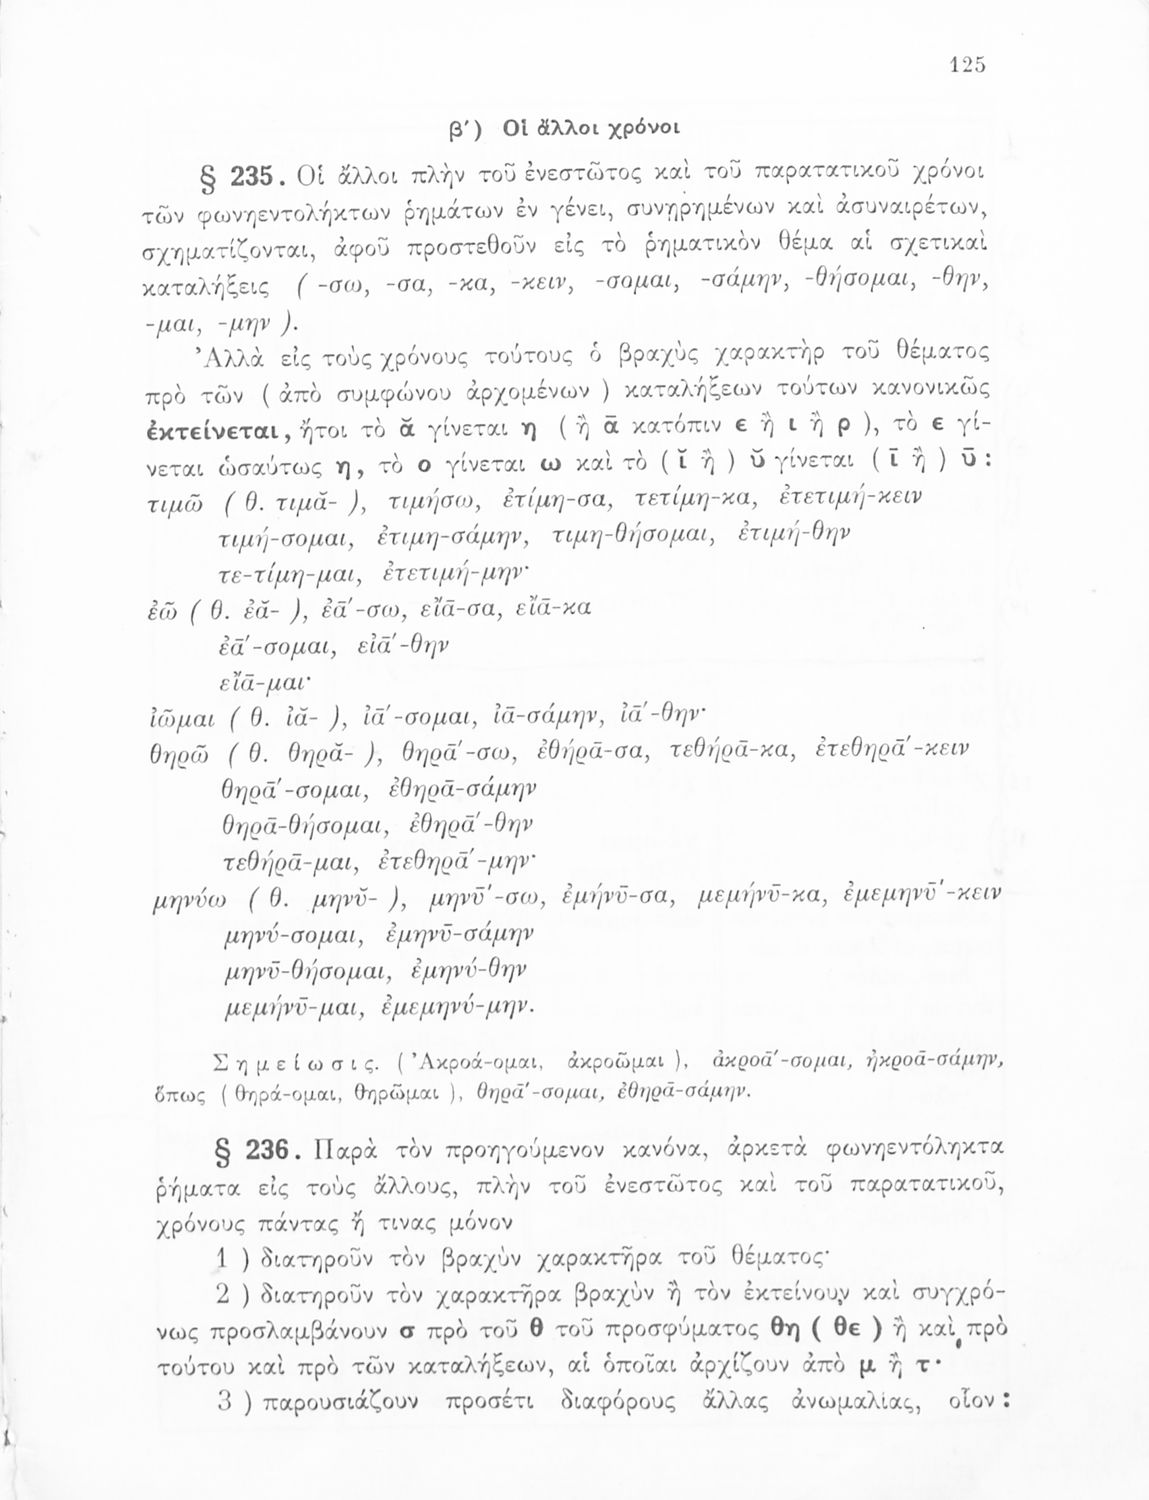 125
β′) Οἱ ἄλλοι χρόνοι
§ 235. Οἱ ἄλλοι πλὴν τοῦ ἐνεστῶτος καὶ τοῦ παρατατικοῦ χρόνοι
τῶν φωνηεντολήκτων ῥημάτων ἐν γένει, συνῃρημένων καὶ ἀσυναιρέτων,
σχηματίζονται, ἀφοῦ προστεθοῦν εἰς τὸ ῥηματικὸν θέμα αἱ σχετικαὶ
καταλήξεις ( -σω, -σα, -κα, -κειν, -σομαι, -σάμην, -θήσομαι, -θην,
-μαι, -μην ).
Ἀλλὰ εἰς τοὺς χρόνους τούτους ὁ βραχὺς χαρακτὴρ τοῦ θέματος
πρὸ τῶν ( ἀπὸ συμφώνου ἀρχομένων ) καταλήξεων τούτων κανονικῶς
ἐκτείνεται, ἤτοι τὸ ᾰ γίνεται η ( ἢ ᾱ κατόπιν ε ἢ ι ἢ ρ ), τὸ ε γί-
νεται ὡσαύτως η, τὸ ο γίνεται ω καὶ τὸ ( ῐ ἢ ) ῠ γίνεται ( ῑ ἢ ) ῡ :
τιμῶ ( θ. τιμᾰ- ), τιμήσω, ἐτίμη-σα, τετίμη-κα, ἐτετιμή-κειν
τιμή-σομαι, ἐτιμη-σάμην, τιμη-θήσομαι, ἐτιμή-θην
τε-τίμη-μαι, ἐτετιμή-μην·
ἐῶ ( θ. ἐᾰ- ), ἐᾱ́-σω, εἴᾱ-σα, εἴᾱ-κα
ἐᾱ́-σομαι, εἰᾱ́-θην
εἴᾱ-μαι·
ἰῶμαι ( θ. ἰᾰ- ), ἰᾱ́-σομαι, ἰᾱ-σάμην, ἰᾱ́-θην·
θηρῶ ( θ. θηρᾰ- ), θηρᾱ́-σω, ἐθήρᾱ-σα, τεθήρᾱ-κα, ἐτεθηρᾱ́-κειν
θηρᾱ́-σομαι, ἐθηρᾱ-σάμην
θηρᾱ-θήσομαι, ἐθηρᾱ́-θην
τεθήρᾱ-μαι, ἐτεθηρᾱ́-μην·
μηνύω ( θ. μηνῠ- ), μηνῡ́-σω, ἐμήνῡ-σα, μεμήνῡ-κα, ἐμεμηνῡ́-κειν
μηνύ-σομαι, ἐμηνῡ-σάμην
μηνῡ-θήσομαι, ἐμηνύ-θην
μεμήνῡ-μαι, ἐμεμηνύ-μην.
Σημείωσις. ( Ἀκροά-ομαι, ἀκροῶμαι ), ἀκροᾱ́-σομαι, ἠκροᾱ-σάμην,
ὅπως ( θηρά-ομαι, θηρῶμαι ), θηρᾱ́-σομαι, ἐθηρᾱ-σάμην.
§ 236. Παρὰ τὸν προηγούμενον κανόνα, ἀρκετὰ φωνηεντόληκτα
ῥήματα εἰς τοὺς ἄλλους, πλὴν τοῦ ἐνεστῶτος καὶ τοῦ παρατατικοῦ,
χρόνους πάντας ἤ τινας μόνον
1 ) διατηροῦν τὸν βραχὺν χαρακτῆρα τοῦ θέματος·
2 ) διατηροῦν τὸν χαρακτῆρα βραχὺν ἢ τὸν ἐκτείνουν καὶ συγχρό-
νως προσλαμβάνουν σ πρὸ τοῦ θ τοῦ προσφύματος θη ( θε ) ἢ καὶ πρὸ
τούτου καὶ πρὸ τῶν καταλήξεων, αἱ ὁποῖαι ἀρχίζουν ἀπὸ μ ἢ τ·
3 ) παρουσιάζουν προσέτι διαφόρους ἄλλας ἀνωμαλίας, οἷον :